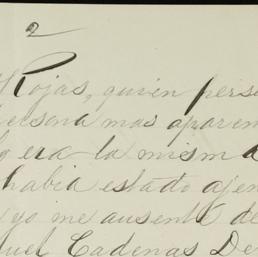 2
Rojas, quien perso
persona mas aparen
era la misma
habia estado ajen
yo me ausenté de
uel Cadenas De